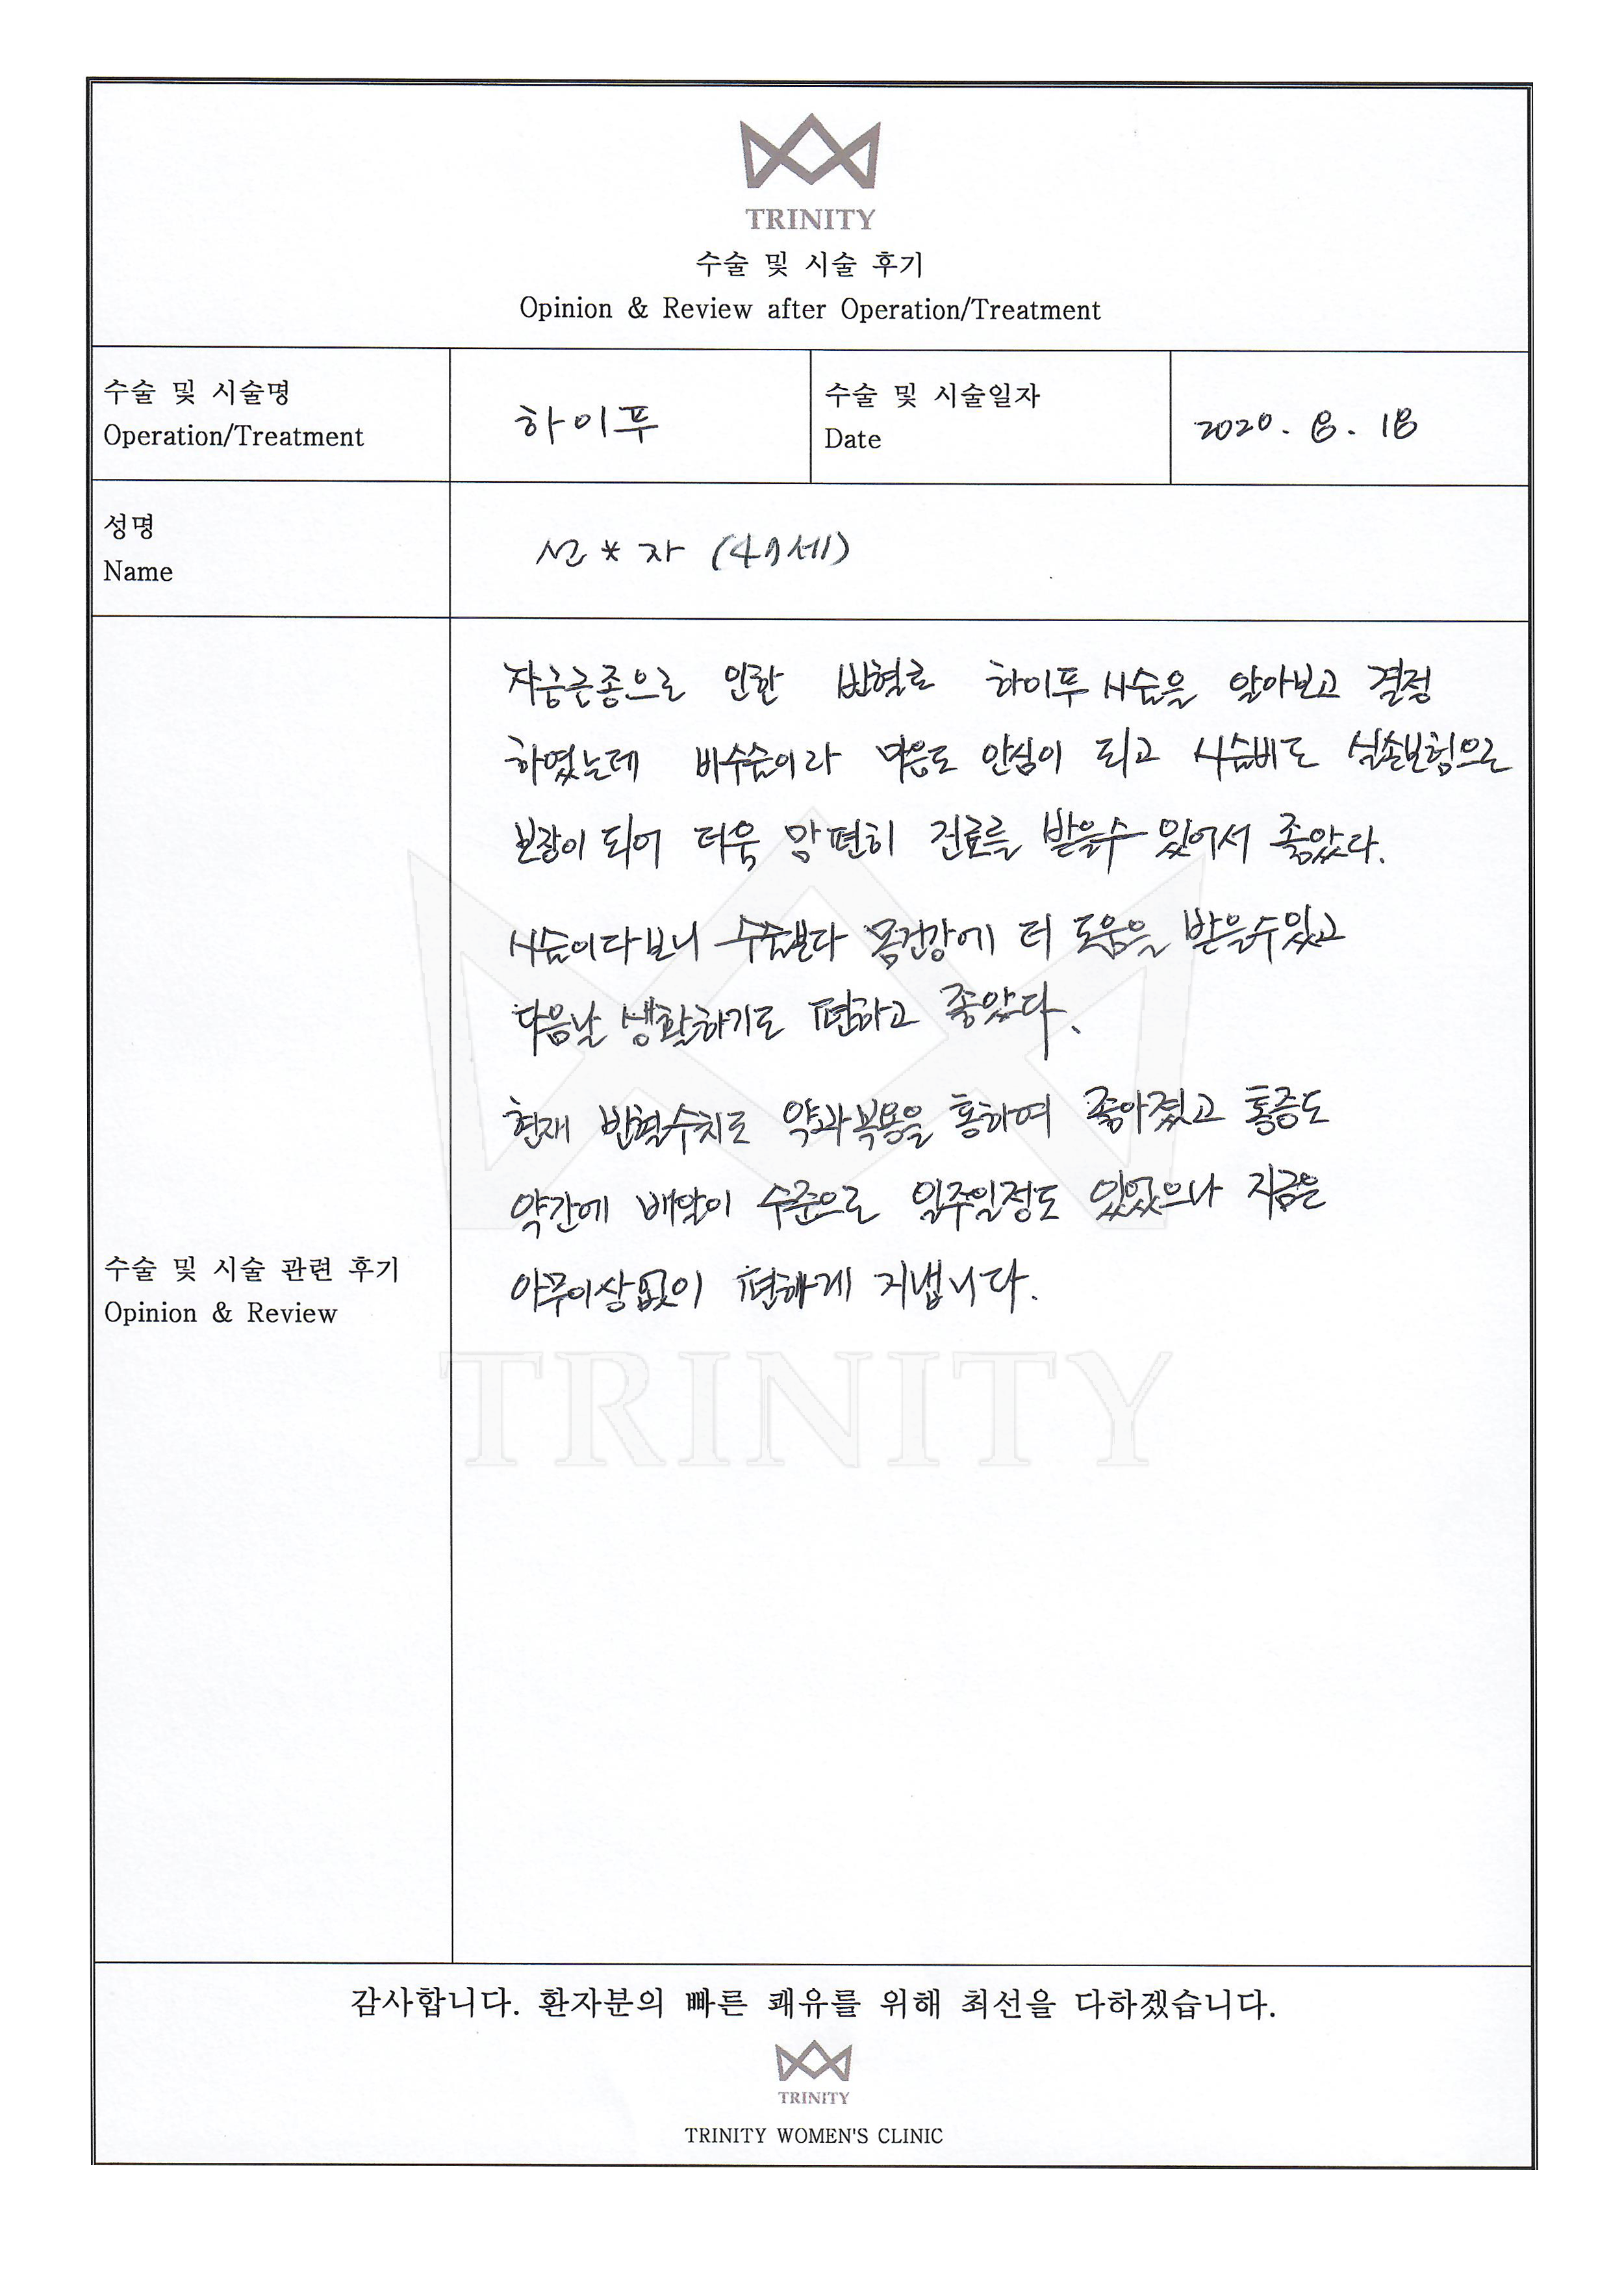 TRINITY
수술 및 시술 후기
Opinion & Review after Operation/Treatment
수술 및 시술명
Operation/Treatment
하이푸
수술 및 시술일자
Date
2020. 8. 18
성명
Name
선*자 (49세)
수술 및 시술 관련 후기
Opinion & Review
자궁근종으로 인한 빈혈로 하이푸 시술을 알아보고 결정
하였는데 비수술이라 마음도 안심이 되고 시술비도 실손보험으로
보장이 되어 더욱 맘 편히 진료를 받을수 있어서 좋았다.
시술이다보니 수술보다 몸건강에 더 도움을 받을수있고
다음날 생활하기도 편하고 좋았다.
현재 빈혈수치도 약과복용을 통하여 좋아졌고 통증도
약간에 배앓이 수준으로 일주일정도 있었으나 지금은
아무이상없이 편하게 지냅니다.
TRINITY
감사합니다. 환자분의 빠른 쾌유를 위해 최선을 다하겠습니다.
TRINITY
TRINITY WOMEN'S CLINIC